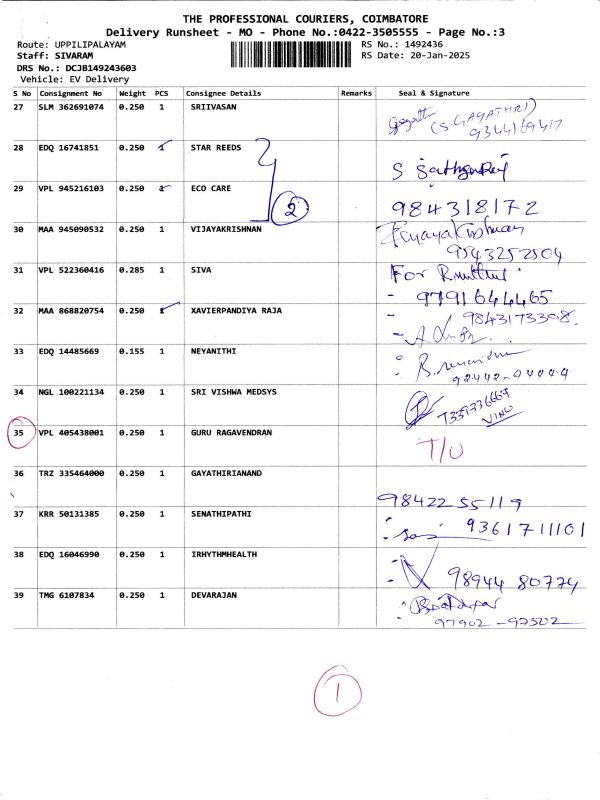 THE PROFESSIONAL COURIERS, COIMBATORE
Delivery Runsheet - MO - Phone No.:0422-3505555 - Page No.:3
Route: UPPILIPALAYAM RS No.: 1492436
Staff: SIVARAM RS Date: 20-Jan-2025
DRS No.: DCJB149243603
Vehicle: EV Delivery
S No Consignment No Weight PCS Consignee Details Remarks Seal & Signature
27 SLM 362691074 0.250 1 SRIIVASAN
(S.GAYATHRI)
9344169417
28 EDQ 16741851 0.250 1 STAR REEDS
S
29 VPL 945216103 0.250 1 ECO CARE
2
9843181172
30 MAA 945090532 0.250 1 VIJAYAKRISHNAN
9543252504
31 VPL 522360416 0.285 1 SIVA
For
- 9791644465
32 MAA 868820754 0.250 1 XAVIERPANDIYA RAJA
9843173308
33 EDQ 14485669 0.155 1 NEYANITHI
34 NGL 100221134 0.250 1 SRI VISHWA MEDSYS
VINU
35 VPL 405438001 0.250 1 GURU RAGAVENDRAN
T/U
36 TRZ 335464000 0.250 1 GAYATHIRIANAND
98422 55119
37 KRR 50131385 0.250 1 SENATHIPATHI
93617 11101
38 EDQ 16046990 0.250 1 IRHYTHMHEALTH
98944 80774
39 TMG 6107834 0.250 1 DEVARAJAN
97902 - 97502
1